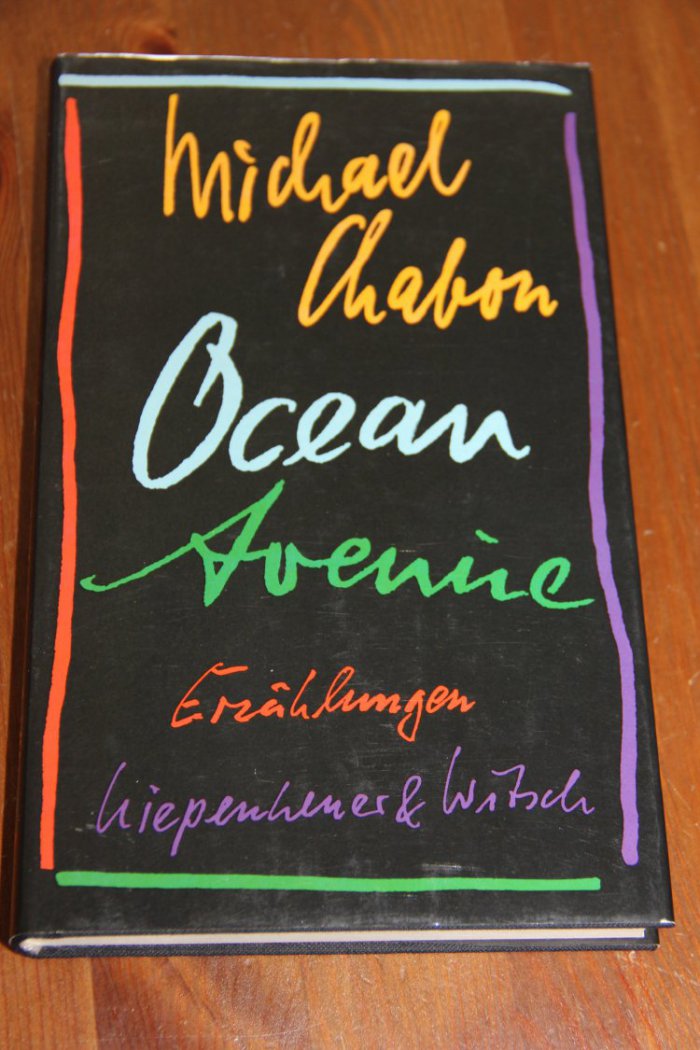 Michael
Chabon
Ocean
Avenue
Erzählungen
Kiepenheuer & Witsch